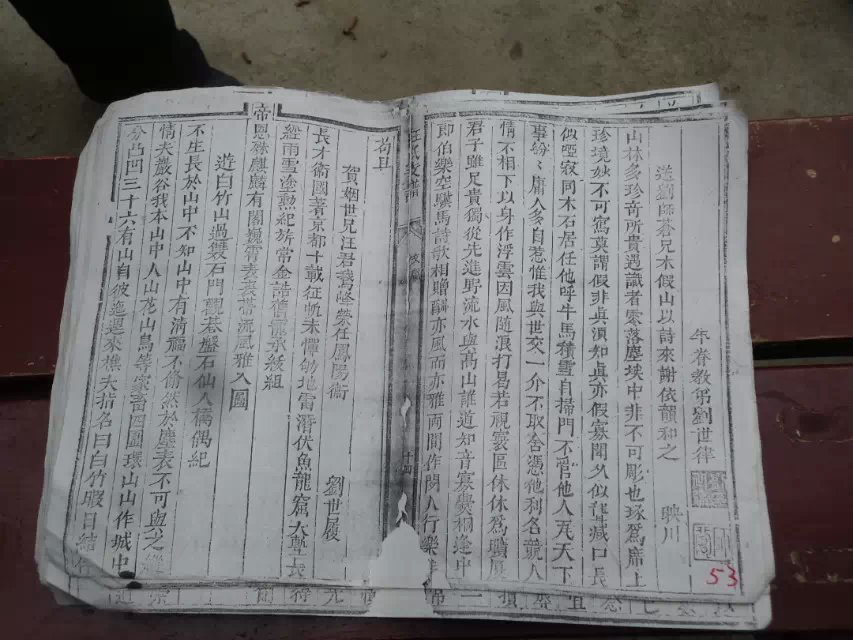 年眷教弟劉世律
送劉師眷兄木假山以詩來謝依韻和之 映川
山林多珍奇所貴遇識者零落塵埃中非不可彫也琢為席上
珍境妙不可寫莫謂假非真須知真亦假寡聞久似聾藏口長
似啞寂同木石居任他呼牛馬積雪自掃門不管他人瓦天下
事紛〻庸人多自惹惟我與世交一介不取舍憑他利名競人
情不相下以身作浮雲因風隨浪打曷若視寰區休休為曠
君子雖足貴獨從先進野流水與高山誰道知音寡與相逢中
即伯樂空驥馬詩歌相贈酬亦風而亦雅兩間作閒人行樂
汪氏文譜
十四
苟且
賀姻世兄汪君鶴峰榮任鳳陽衛 劉世履
長才衞國著京都十載征帆未憚劬地雷潛伏魚龍窟大
經雨雪途勲紀旂常金誥舊 承紙組
帝恩綠麒麟有閣巍 帶流風雅入圖
遊白竹山過 石門觀棋盤石仙人橋偶紀
不生長於山中不知山中有清福不偷然於塵表不可與之
情夫嚴谷我本山中人山花山鳥等家畜四圍環山山作城中
分凸凹三十六有山自彼迤邐來樵夫指名曰白竹暇日結
53